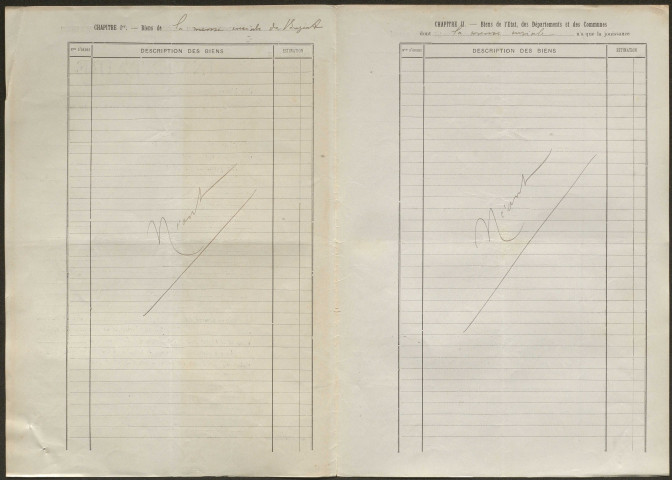 CHAPITRE Ier. — Biens de la mense curiale de
Nos D'ORDRE DESCRIPTION DES BIENS ESTIMATION
Néant
CHAPITRE II. — Biens de l'Etat, des Départements et des Communes
dont la mense curiale n'a que la jouissance
Nos D'ORDRE DESCRIPTION DES BIENS ESTIMATION
Néant